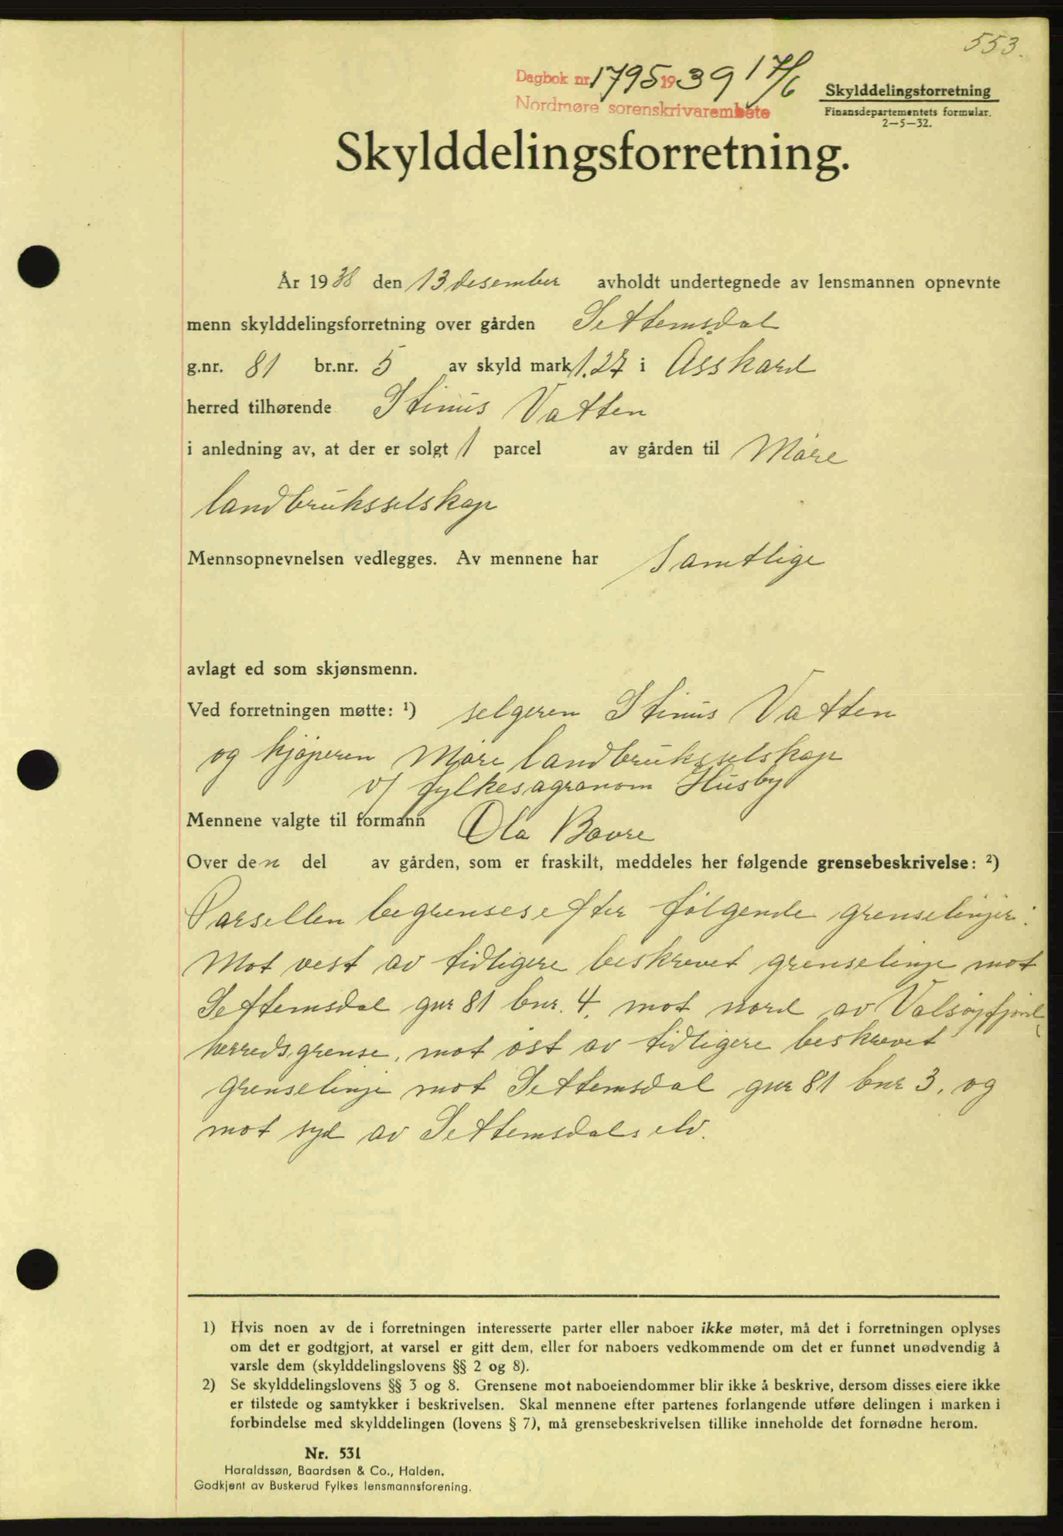 553.
Dagbok nr. 1795 1939 17/6
Nordmøre sorenskrivarembete
Skylddelingsforretning
Finansdepartementets formular.
2—5—32.
Skylddelingsforretning.
År 1938 den 13 desember avholdt undertegnede av lensmannen opnevnte
menn skylddelingsforretning over gården Settemsdal
g.nr. 81 br.nr. 5 av skyld mark 1.27 i Åsskard
herred tilhørende Stinus Vatten
i anledning av, at der er solgt 1 parcel av gården til Møre
landbruksselskap
Mennsopnevnelsen vedlegges. Av mennene har Samtlige
avlagt ed som skjønsmenn.
Ved forretningen møtte: ¹) selgeren Stinus Vatten
og kjøperen Møre landbruksselskap
v/ fylkesagronom Husby
Mennene valgte til formann Ola Bøvre
Over den del av gården, som er fraskilt, meddeles her følgende grensebeskrivelse: ²)
Parsellen begrenses efter følgende grenselinjer:
Mot vest av tidligere beskrevet grenselinje mot
Settemsdal gnr 81 bnr. 4, mot nord av Valsøyfjord
herredsgrense, mot øst av tidligere beskrevet
grenselinje mot Settemsdal gnr 81 bnr 3, og
mot syd av Settemsdalselv.
1) Hvis noen av de i forretningen interesserte parter eller naboer ikke møter, må det i forretningen oplyses
om det er godtgjort, at varsel er gitt dem, eller for naboers vedkommende om det er funnet unødvendig å
varsle dem (skylddelingslovens §§ 2 og 8).
2) Se skylddelingslovens §§ 3 og 8. Grensene mot naboeiendommer blir ikke å beskrive, dersom disses eiere ikke
er tilstede og samtykker i beskrivelsen. Skal mennene efter partenes forlangende utføre delingen i marken i
forbindelse med skylddelingen (lovens § 7), må grensebeskrivelsen tillike inneholde det fornødne herom.
Nr. 531
Haraldssøn, Baardsen & Co., Halden.
Godkjent av Buskerud Fylkes lensmannsforening.